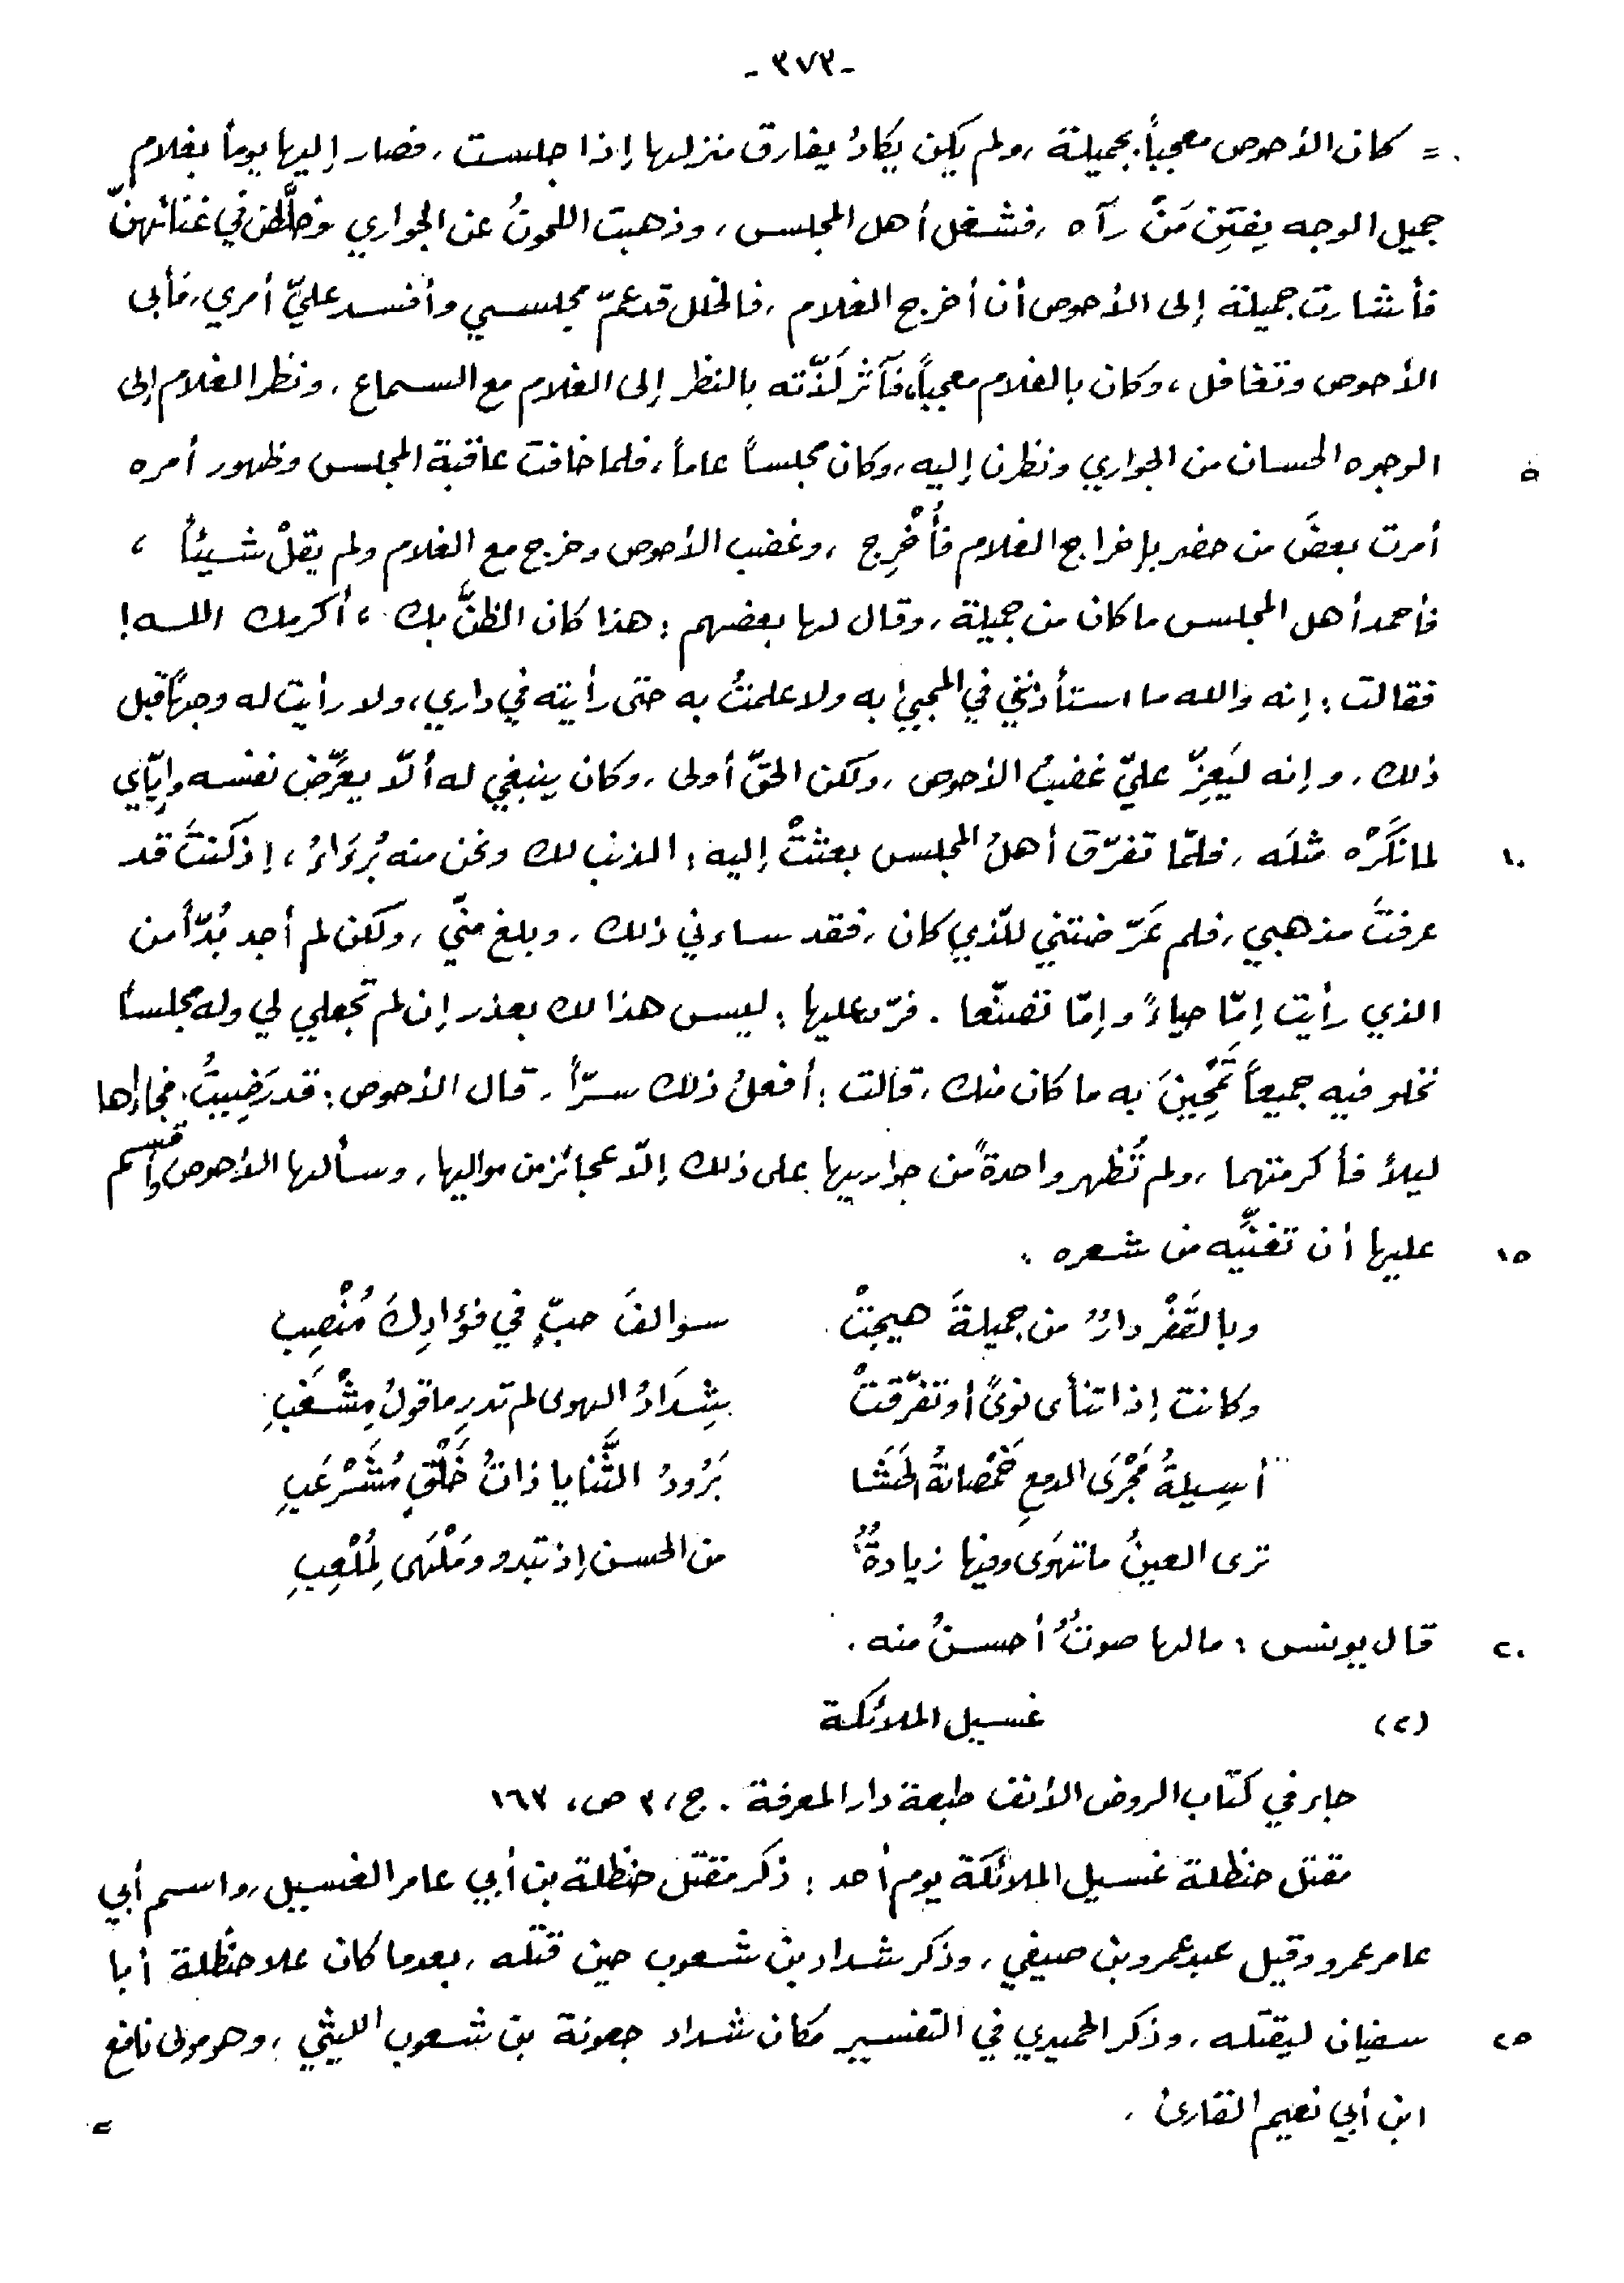 -٣٧٣-
= كان الأحوص معجباً بجميلة، ولم يكن يكادُ يفارق منزلها إذا جلست، فصار إليها يوماً بغلام
جميل الوجه يفتِن مَنْ رآه، فشغل أهل المجلس، وذهبت اللحونُ عن الجواري وخلَّطن في غنائهنّ
فأشارت جميلة إلى الأحوص أن أخرج الغلام، فالخلل قد عمّ مجلسي وأفسد عليّ أمري، فأبى
الأحوص وتغافل، وكان بالغلام معجباً، فآثر لَذّته بالنظر إلى الغلام مع السماع، ونظر الغلام إلى
٥ الوجوه الحسان من الجواري ونظرن إليه، وكان مجلساً عاماً، فلما خافت عاقبة المجلس وظهور أمره
أمرت بعضَ من حضر بإخراج الغلام فأُخْرِج، وغضب الأحوص وخرج مع الغلام ولم يقلْ شيئاً،
فأحمد أهل المجلس ما كان من جميلة، وقال لها بعضهم: هذا كان الظنَّ بك، أكرمك الله!
فقالت: إنه والله ما استأذنني في المجيئ به ولا علمتُ به حتى رأيته في داري، ولا رأيت له وجهاً قبل
ذلك، وإنه ليَعِزّ عليّ غضبُ الأحوص، ولكن الحقّ أولى، وكان ينبغي له ألاّ يعرِّض نفسه وإيّاي
١٠ لما نَكَرْه مثلَه، فلمّا تفرّق أهلُ المجلس بعثتْ إليه: الذنب لك ونحن منه بُرَءَاءُ، إذ كنتَ قد
عرفتَ مذهبي، فلم عَرّضتني للّذي كان، فقد ساءني ذلك، وبلغ منّي، ولكن لم أجد بُدّاً من
الذي رأيت إمّا حياءً وإمّا تصنّعا. فردّ عليها: ليس هذا لك بعذر إن لم تجعلي لي وله مجلساً
نخلو فيه جميعاً تَمْحِينَ به ما كان منك، قالت: أفعلُ ذلك سرّاً، قال الأحوص: قد رَضِيتُ، فجاءاها
ليلاً فأكرمتهما، ولم تُظهر واحدةً من جواريها على ذلك إلاّ عجائز من مواليها، وسألها الأحوص وأقسم
١٥ عليها أن تغنِّيه من شعره:
وبالقَفْر دارٌ من جميلةَ هيجتْ سوالفَ حبٍّ في فؤادِكَ مُنْصِبِ
وكانت إذا تنأى نوىً أو تفرّقتْ شِدَادُ الهوى لم تدرِ ما قولُ مِشْغَبِ
أسِيلةُ مَجْرَى الدمعِ خَمْصانةُ الحَشَا بَرُودُ الثَّنايا ذاتُ خَلْقٍ مُشَرْعَبِ
ترى العينُ ما تهوَى وفيها زيادةٌ من الحسن إذ تبدو ومَلْهَى لِمُلْعِبِ
٢٠ قال يونس: مالها صوتٌ أحسنُ منه.
(٢) غسيل الملائكة
جاء في كتاب الروض الأنف طبعة دار المعرفة. ج، ٣ ص، ١٦٣
مقتل حنظلة غسيل الملائكة يوم أحد: ذكر مقتل حنظلة بن أبي عامر الغسيل، واسم أبي
عامر عمرو وقيل عبد عمرو بن صيفي، وذكر شداد بن شعوب حين قتله، بعدما كان علا حنظلة أبا
٢٥ سفيان ليقتله، وذكر الحميدي في التفسير مكان شداد جعونة بن شعوب الليثي، وهو مولى نافع
ابن أبي نعيم القارئ.
=